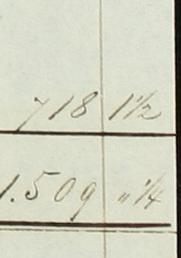 718 1½
1.509 "¼